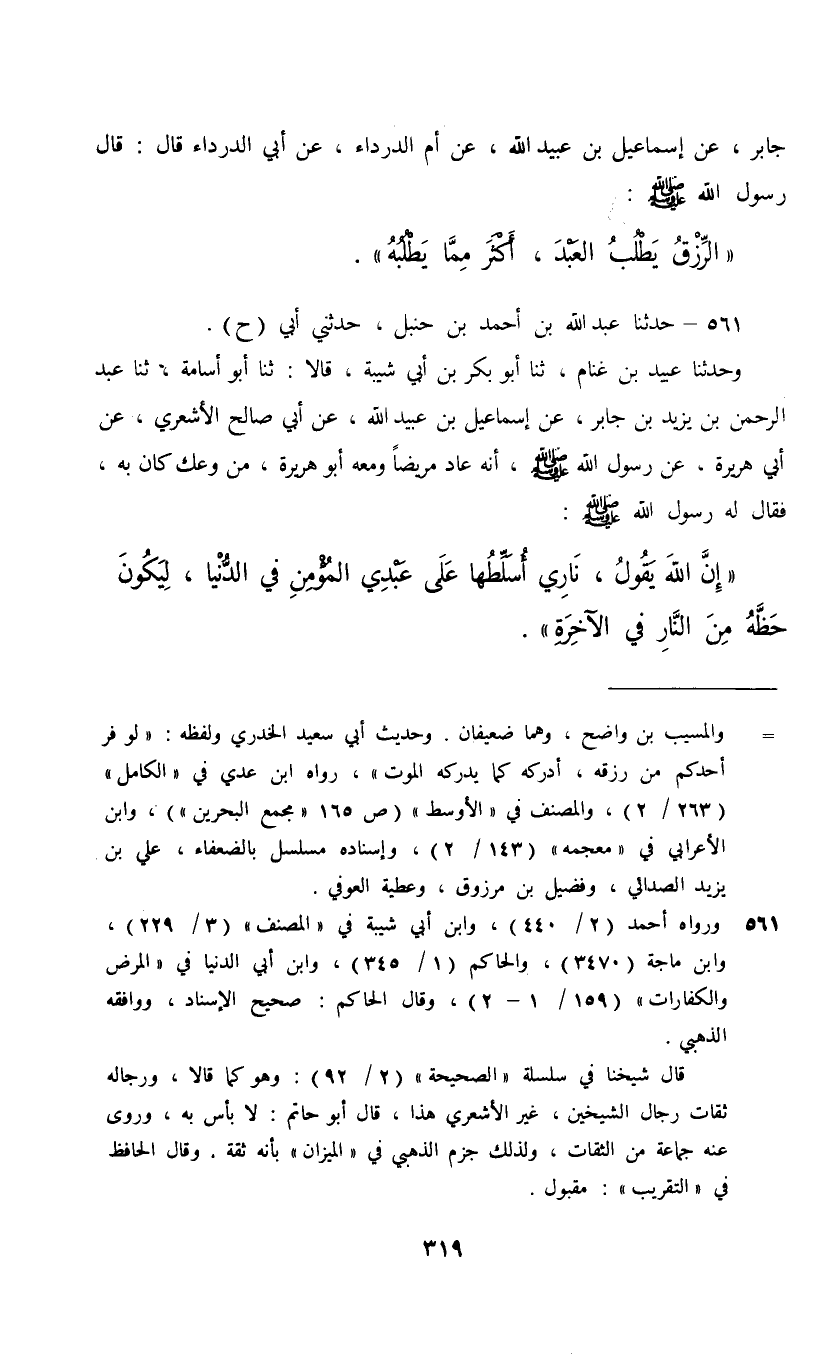 جابر ، عن إسماعيل بن عبيد الله ، عن أم الدرداء ، عن أبي الدرداء قال : قال
رسول الله ﷺ :
« الرِّزْقُ يَطْلُبُ العَبْدَ ، أَكْثَرَ مِمَّا يَطْلُبُهُ » .
٥٦١ – حدثنا عبد الله بن أحمد بن حنبل ، حدثني أبي (ح) .
وحدثنا عبيد بن غنام ، ثنا أبو بكر بن أبي شيبة ، قالا : ثنا أبو أسامة ، ثنا عبد
الرحمن بن يزيد بن جابر ، عن إسماعيل بن عبيد الله ، عن أبي صالح الأشعري ، عن
أبي هريرة ، عن رسول الله ﷺ ، أنه عاد مريضاً ومعه أبو هريرة ، من وعك كان به ،
فقال له رسول الله ﷺ :
« إِنَّ اللهَ يَقُولُ ، نَارِي أُسَلِّطُها عَلَى عَبْدِي المُؤْمِنِ في الدُّنْيا ، لِيَكُونَ
حَظَّهُ مِنَ النَّارِ في الآخِرَةِ » .
= والمسيب بن واضح ، وهما ضعيفان . وحديث أبي سعيد الخدري ولفظه : « لو فر
أحدكم من رزقه ، أدركه كما يدركه الموت » ، رواه ابن عدي في « الكامل »
(٢٦٣ / ٢) ، والمصنف في « الأوسط » (ص ١٦٥ « مجمع البحرين ») ، وابن
الأعرابي في « معجمه » (١٤٣ / ٢) ، وإسناده مسلسل بالضعفاء ، علي بن
يزيد الصدائي ، وفضيل بن مرزوق ، وعطية العوفي .
٥٦١ ورواه أحمد (٢ / ٤٤٠) ، وابن أبي شيبة في « المصنف » (٣ / ٢٢٩) ،
وابن ماجة (٣٤٧٠) ، والحاكم (١ / ٣٤٥) ، وابن أبي الدنيا في « المرض
والكفارات » (١٥٩ / ١ – ٢) ، وقال الحاكم : صحيح الإسناد ، ووافقه
الذهبي .
قال شيخنا في سلسلة « الصحيحة » (٢ / ٩٢) : وهو كما قالا ، ورجاله
ثقات رجال الشيخين ، غير الأشعري هذا ، قال أبو حاتم : لا بأس به ، وروى
عنه جماعة من الثقات ، ولذلك جزم الذهبي في « الميزان » بأنه ثقة . وقال الحافظ
في « التقريب » : مقبول .
٣١٩